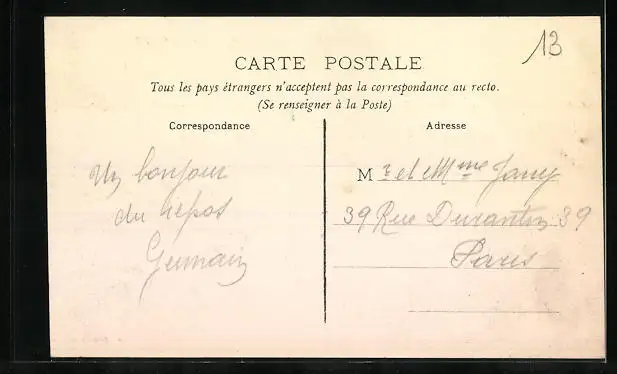 13
CARTE POSTALE
Tous les pays étrangers n'acceptent pas la correspondance au recto.
(Se renseigner à la Poste)
Correspondance
Un bonjour
du repos
Germain
Adresse
Mr et Mme Jany
39 Rue Durantin 39
Paris